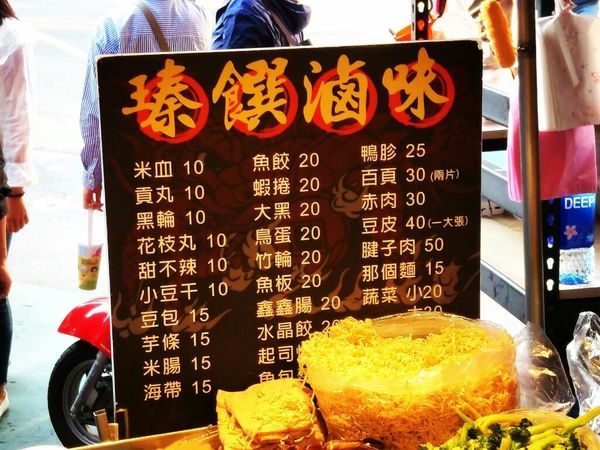 瑧饌滷味
米血 10
貢丸 10
黑輪 10
花枝丸 10
甜不辣 10
小豆干 10
豆包 15
芋條 15
米腸 15
海帶 15
魚餃 20
蝦捲 20
大黑 20
鳥蛋 20
竹輪 20
魚板 20
鑫鑫腸 20
水晶餃 20
起司
魚包
鴨胗 25
百頁 30 (兩片)
赤肉 30
豆皮 40 (一大張)
腱子肉 50
那個麵 15
蔬菜 小20
DEEP